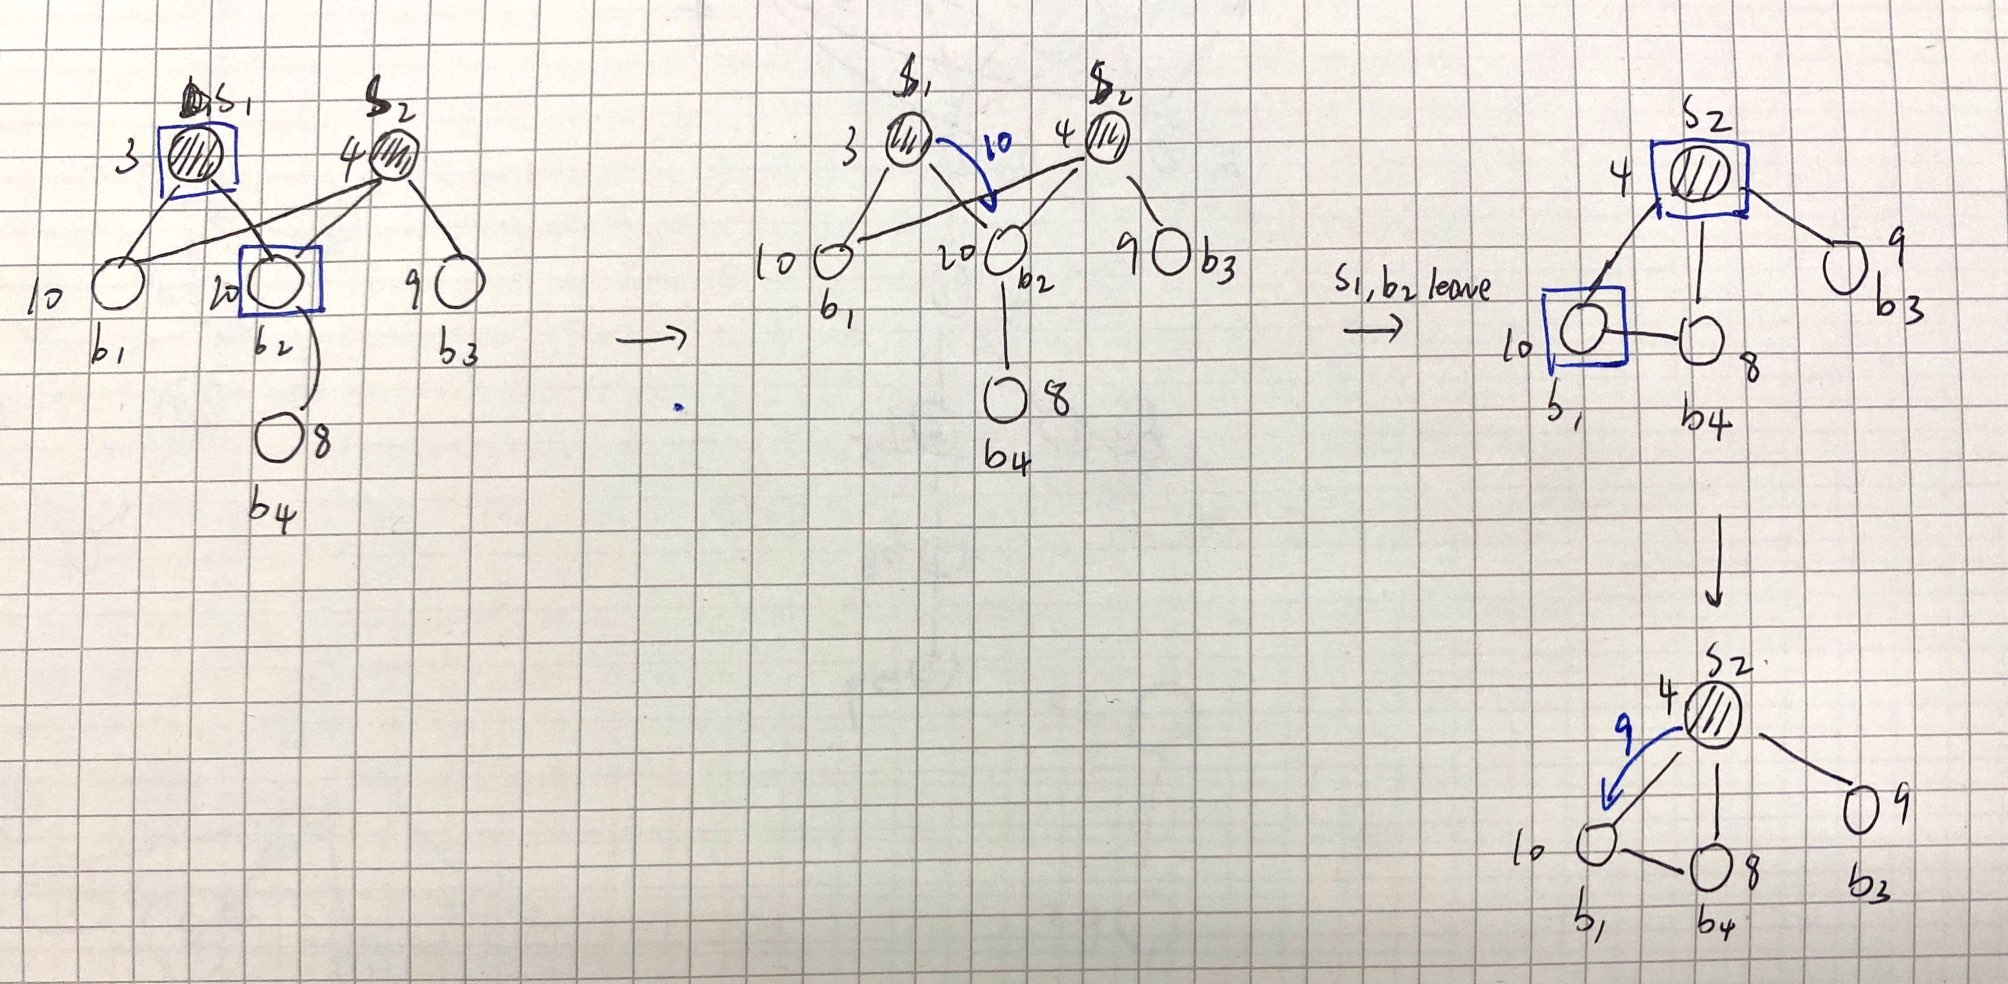 S1 S2
3 4
10 20 9
b1 b2 b3
8
b4
S1 S2
3 10 4
10 20 9 b3
b1 b2
8
b4
S1, b2 leave
S2
4
9
b3
10 8
b1 b4
S2
4
9
9
10 8
b3
b1 b4